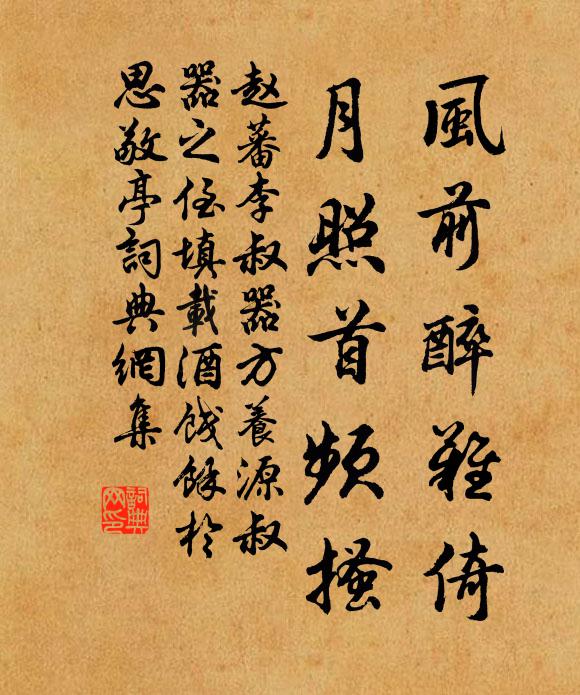 風前醉難倚
月照首頻搔
赵蕃李叔器方養源叔
器之侄填載酒餞餘於
思敬亭詞典網集
詞典網印